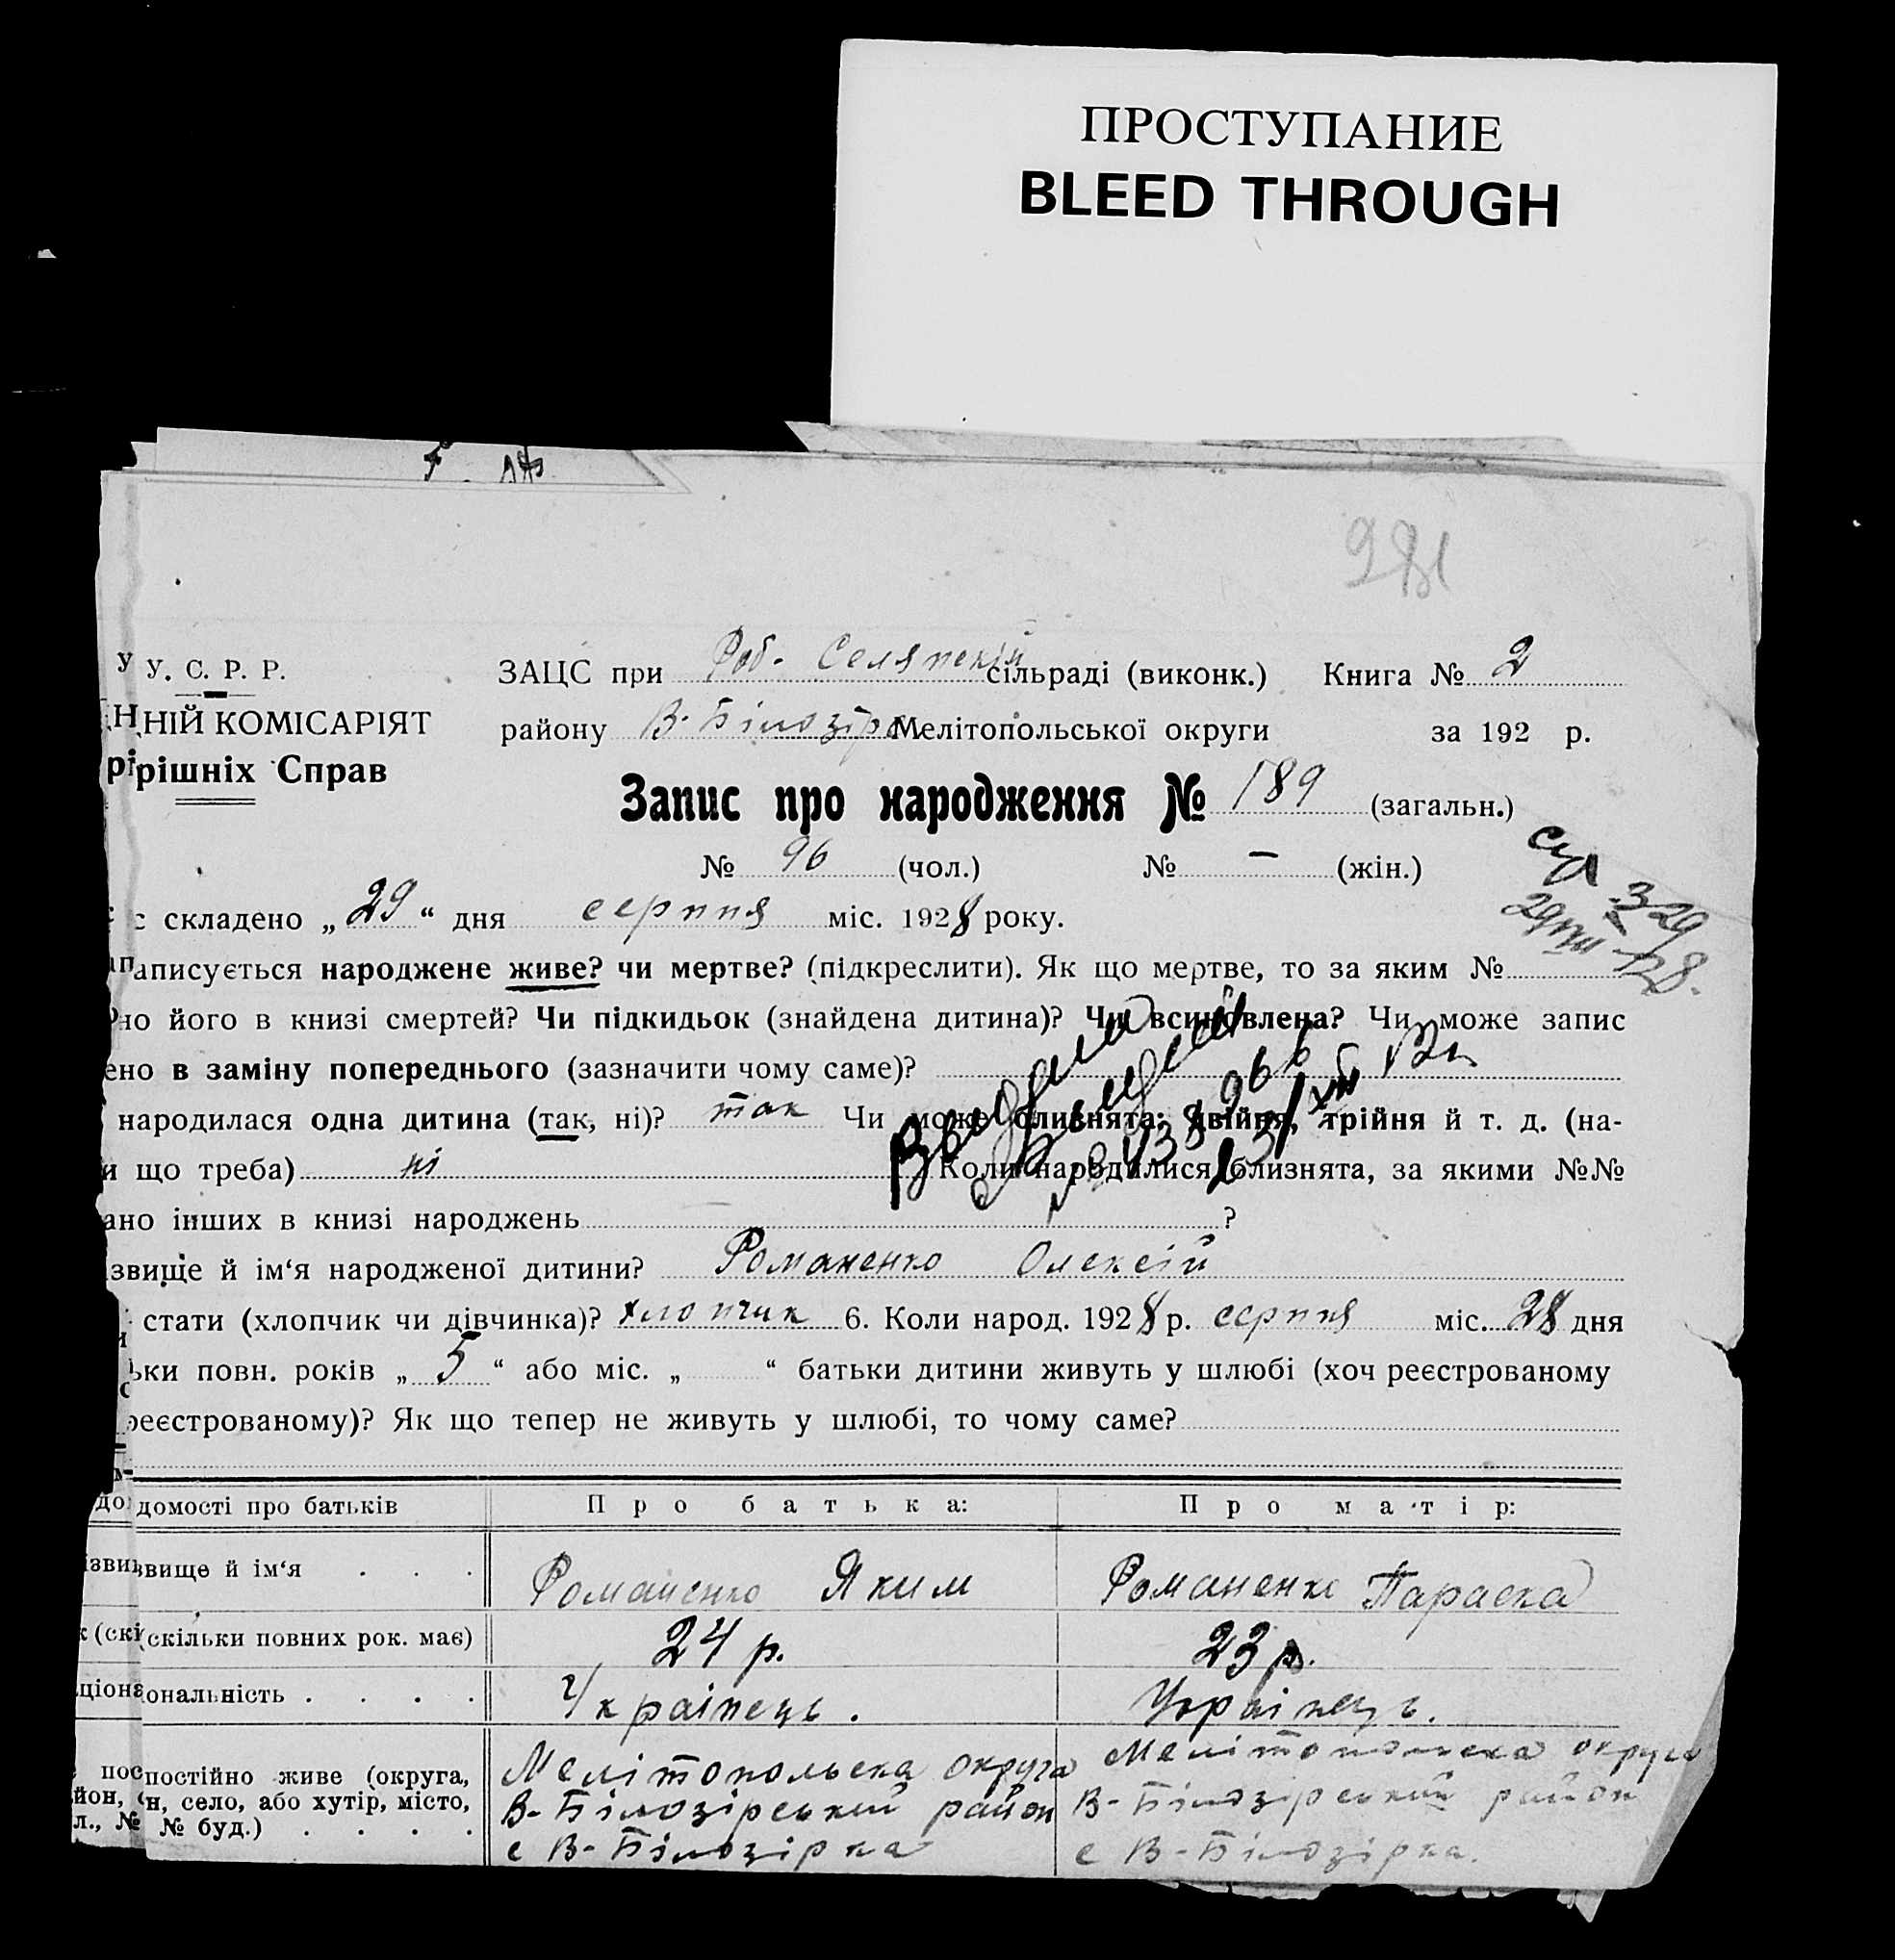 ПРОСТУПАНИЕ
BLEED THROUGH
У. С. Р. Р.
ЗАЦС при Роб. Селянскій сільраді (виконк.) Книга № 2
НІЙ КОМІСАРІЯТ
району В. Білозірс. Мелітопольської округи за 192 р.
рішніх Справ
Запис про народження № 189 (загальн.)
№ 96 (чол.) № — (жін.)
с складено „29“ дня серпня міс. 1928 року.
аписується народжене живе? чи мертве? (підкреслити). Як що мертве, то за яким №
но його в книзі смертей? Чи підкидьок (знайдена дитина)? Чи всиновлена? Чи може запис
ено в заміну попереднього (зазначити чому саме)?
народилася одна дитина (так, ні)? так Чи може близнята: двійня, трійня й т. д. (на-
и що треба) ні Коли народилися близнята, за якими №№
ано інших в книзі народжень ?
звище й ім‘я народженої дитини? Романенко Олексій
стати (хлопчик чи дівчинка)? хлопчик 6. Коли народ. 1928 р. серпня міс. 28 дня
ьки повн. років „5“ або міс. „ “ батьки дитини живуть у шлюбі (хоч реєстрованому
реєстрованому)? Як що тепер не живуть у шлюбі, то чому саме?
домості про батьків Про батька: Про матір:
звище й ім‘я . . . Романенко Яким Романенко Параска
(скільки повних рок. має) 24 р. 23 р.
ональність . . . . Українець. Українець.
постійно живе (округа, Мелітопольска округа Мелітопольска округа
н, село, або хутір, місто, В-Білозірський район В-Білозірський район
№ буд.) . . . . с В-Білозірка с В-Білозірка.